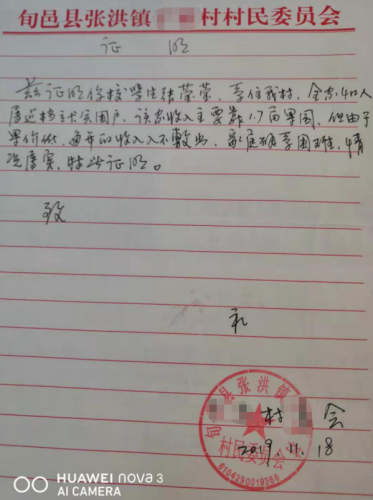 旬邑县张洪镇 村村民委员会
证 明
兹证明你校学生 荣荣,系住我村,全家四口人
属 户,该家收入主要靠1.7亩果园,但由于
果价低,每年的收入入不敷出,家庭确系困难,情
况属实,特此证明。
致
礼
村 会
2019.11.18
旬邑县张洪镇
村民委员会
6104290019366
HUAWEI nova 3
AI CAMERA